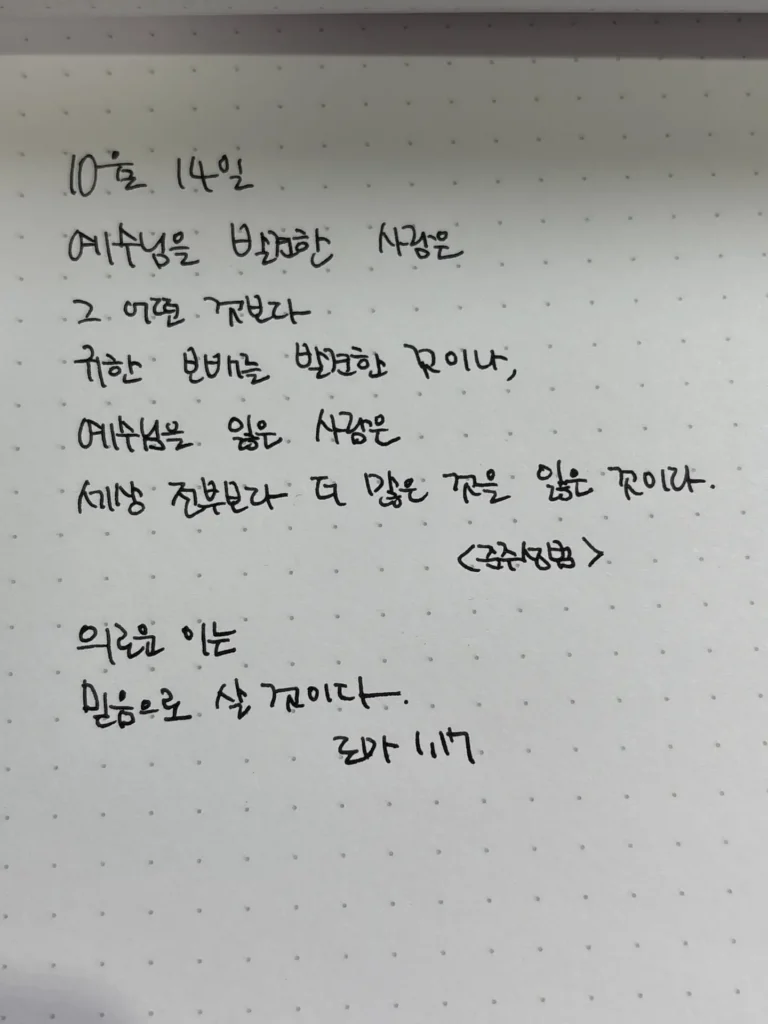 10월 14일
예수님을 발견한 사람은
그 어떤 것보다
귀한 보배를 발견한 것이나,
예수님을 잃은 사람은
세상 전부보다 더 많은 것을 잃은 것이라.
<준주성범>
의로운 이는
믿음으로 살 것이다.
로마 1,17